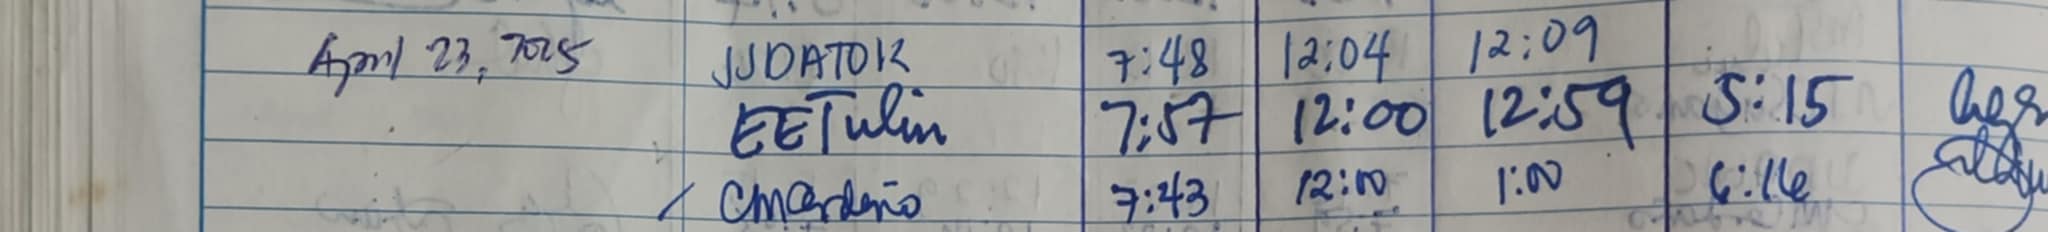 April 23, 2025 JJDATOR 7:48 12:04 12:09
EETulin 7:57 12:00 12:59 5:15
CMCardeño 7:43 12:00 1:00 6:16